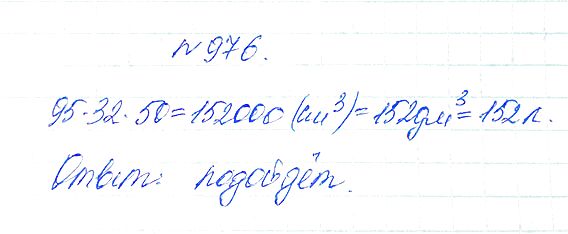 №976.
95·32·50=152000(см³)=152дм³=152л.
Ответ: подойдёт.